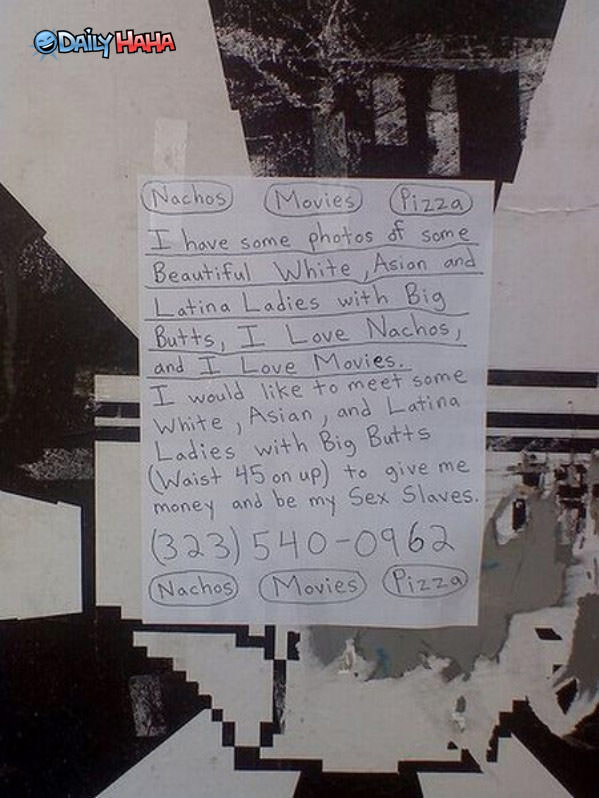 DAILY HAHA
Nachos Movies Pizza
I have some photos of some
Beautiful White, Asian and
Latina Ladies with Big
Butts, I Love Nachos,
and I Love Movies.
I would like to meet some
White, Asian, and Latina
Ladies with Big Butts
(Waist 45 on up) to give me
money and be my Sex Slaves.
(323) 540-0962
Nachos Movies Pizza